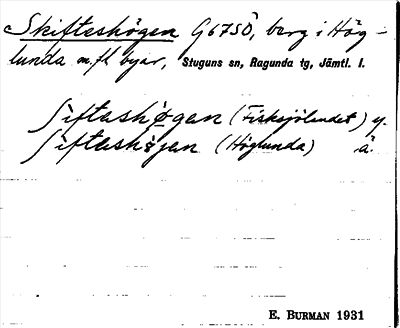 Skifteshögen G6750, berg i Hög-
lunda m.fl. byar, Stuguns sn, Ragunda tg, Jämtl. l.
ʃiftəshøgen (Fisksjölandet) y.
ʃiftəshøjen (Höglunda) ä.
E. BURMAN 1931